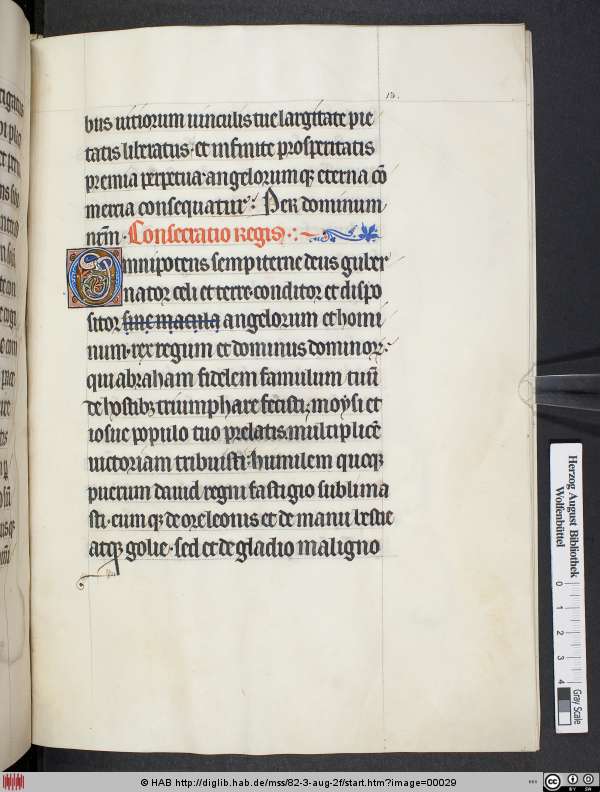 13.
bus uitiorum uinculis tue largitate pie
tatis liberatus · et infinite prosperitatis
premia perpetua · angelorum q; eterna cō
mercia consequatur : Per dominum
nr̄m · Consecratio regis :
Omnipotens sempiterne deus guber
nator celi et terre · conditor et dispo
sitor sine macula angelorum et homi
num · rex regum et dominus dominor᷒
qui abraham fidelem famulum tuū
de hostibꝫ triumphare fecisti ; moysi et
iosue populo tuo prelatis multiplicē
uictoriam tribuisti : humilem quoqꝫ
puerum dauid regni fastigio sublima
sti · eum q; de ore leonis et de manu bestie
atqꝫ golie · sed et de gladio maligno
Herzog August Bibliothek
Wolfenbüttel
0 1 2 3 4
Gray Scale
© HAB http://diglib.hab.de/mss/82-3-aug-2f/start.htm?image=00029
BY SA